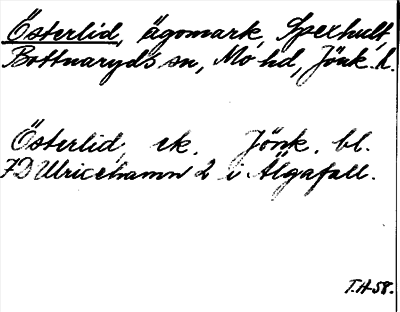 Österlid, ägomark, Sperhult,
Bottnaryds sn, Mo hd, Jönk. l.
Österlid, ek. Jönk. bl.
7D Ulricehamn 2 i Älgafall.
T.H-58.